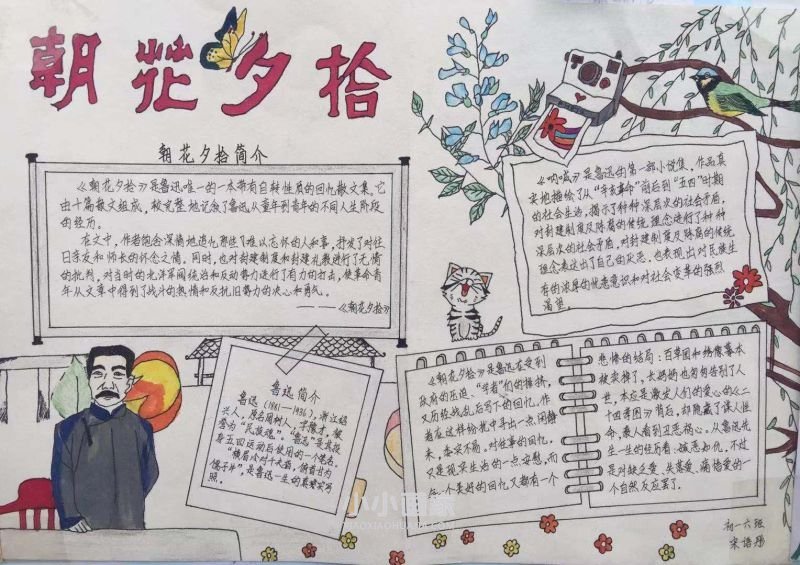 朝花夕拾
朝花夕拾简介
《朝花夕拾》是鲁迅唯一的一本带有自转性质的回忆散文集。它
由十篇散文组成,较完整地记叙了鲁迅从童年到青年的不同人生阶段
的经历。
在文中,作者饱含深情地追忆那些了难以忘怀的人和事,抒发了对往
日亲友和师长的怀念之情。同时,也对封建制度和封建礼教进行了无情
的批判,对当时的北洋军阀统治和反动势力进行了有力的打击,使革命青
年从文章中得到了战斗的热情和反抗旧势力的决心和勇气。
——《朝花夕拾》
《呐喊》是鲁迅的第一部小说集,作品真
实地描绘了从“辛亥革命”前后到“五四”时期
的社会生活,揭示了种种深层次的社会矛盾,
对封建制度及陈腐的传统理念进行了种种
深层次的社会矛盾,对封建制度及陈腐的传统
理念表达出了自己的反思。也表现出对民族生
存的浓厚的忧患意识和对社会变革的强烈
渴望。
鲁迅简介
鲁迅(1881—1936),浙江绍
兴人,原名周树人,字豫才,被
誉为“民族魂”。“鲁迅”是其投
身五四运动后使用的一个笔名。
“横眉冷对千夫指,俯首甘为
儒子牛”,是鲁迅一生的真实写
照。
《朝花夕拾》是鲁迅在受到
政府的压迫、“学者”们的排挤,
又历经战乱后写下的回忆。作
者在这样纷扰中寻出一点闲静
来,委实不易。对往事的回忆,
又是现实生活的一点安慰,而
每一个美好的回忆又都有一个
悲惨的结局:百草园和绣像摹本
被卖掉了,长妈妈也匆匆告别了人
世,本应是激发人们的爱心的《二
十四孝图》背后,却隐藏了谋人性
命,教人看到丑恶祸心。从鲁迅先
生一生的经历看:嫉恶如仇,不过
是对缺乏爱、失落爱、痛惜爱的一
个自然反应罢了。
初一六班
小小画家
XIAOXIAOHUAJIA.COM